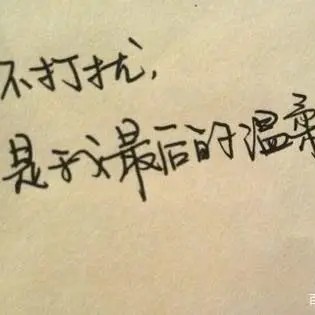 不打扰,
是我最后的温柔
百